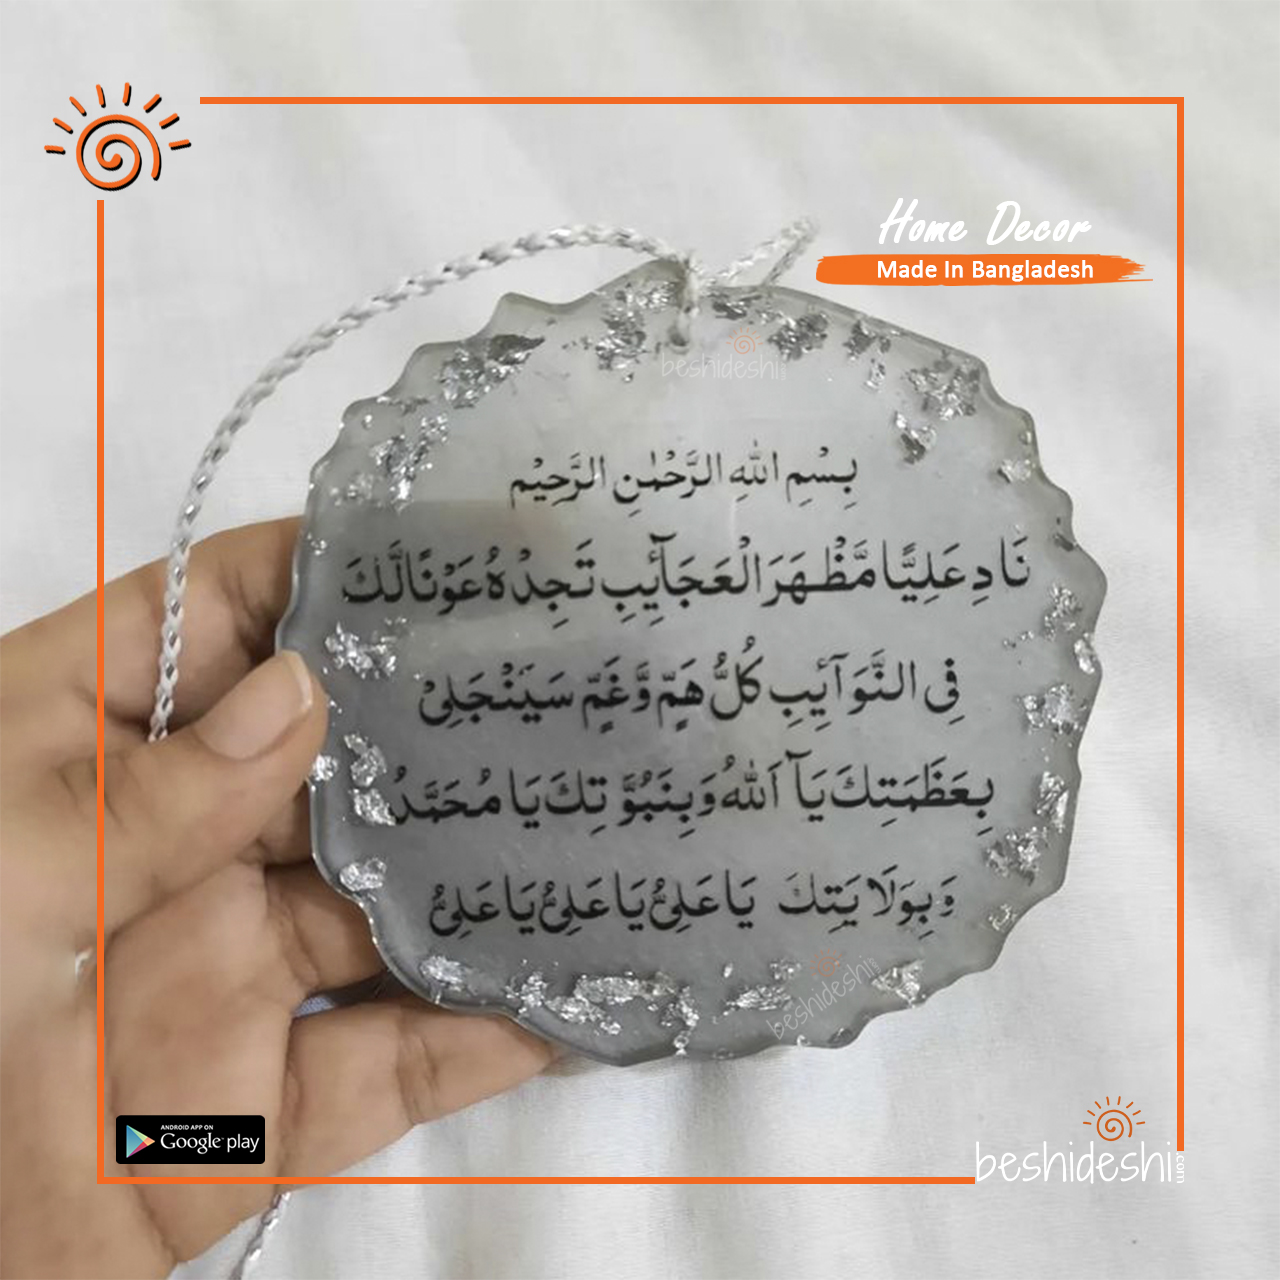 Home Decor
Made In Bangladesh
beshideshi
بِسْمِ اللهِ الرَّحْمٰنِ الرَّحِيْمِ
نَادِ عَلِيًّا مَّظْهَرَ الْعَجَآئِبِ تَجِدْهُ عَوْنًا لَّكَ
فِی النَّوَآئِبِ كُلُّ هَمٍّ وَّغَمٍّ سَيَنْجَلِیْ
بِعَظَمَتِكَ يَآ اَللّٰهُ وَبِنَبُوَّتِكَ يَا مُحَمَّدُ
وَبِوَلَايَتِكَ يَا عَلِیُّ يَا عَلِیُّ يَا عَلِیُّ
beshideshi
ANDROID APP ON
Google play
beshideshi.com